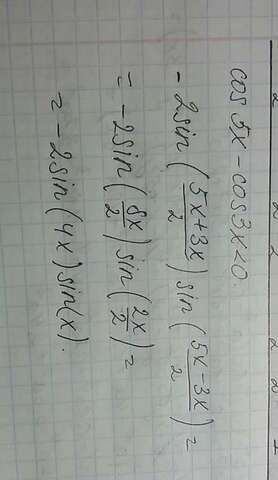 cos 5x - cos 3x < 0
- 2 sin ( (5x+3x)/2 ) sin ( (5x-3x)/2 ) =
= - 2 sin ( 8x/2 ) sin ( 2x/2 ) =
= - 2 sin (4x) sin(x).